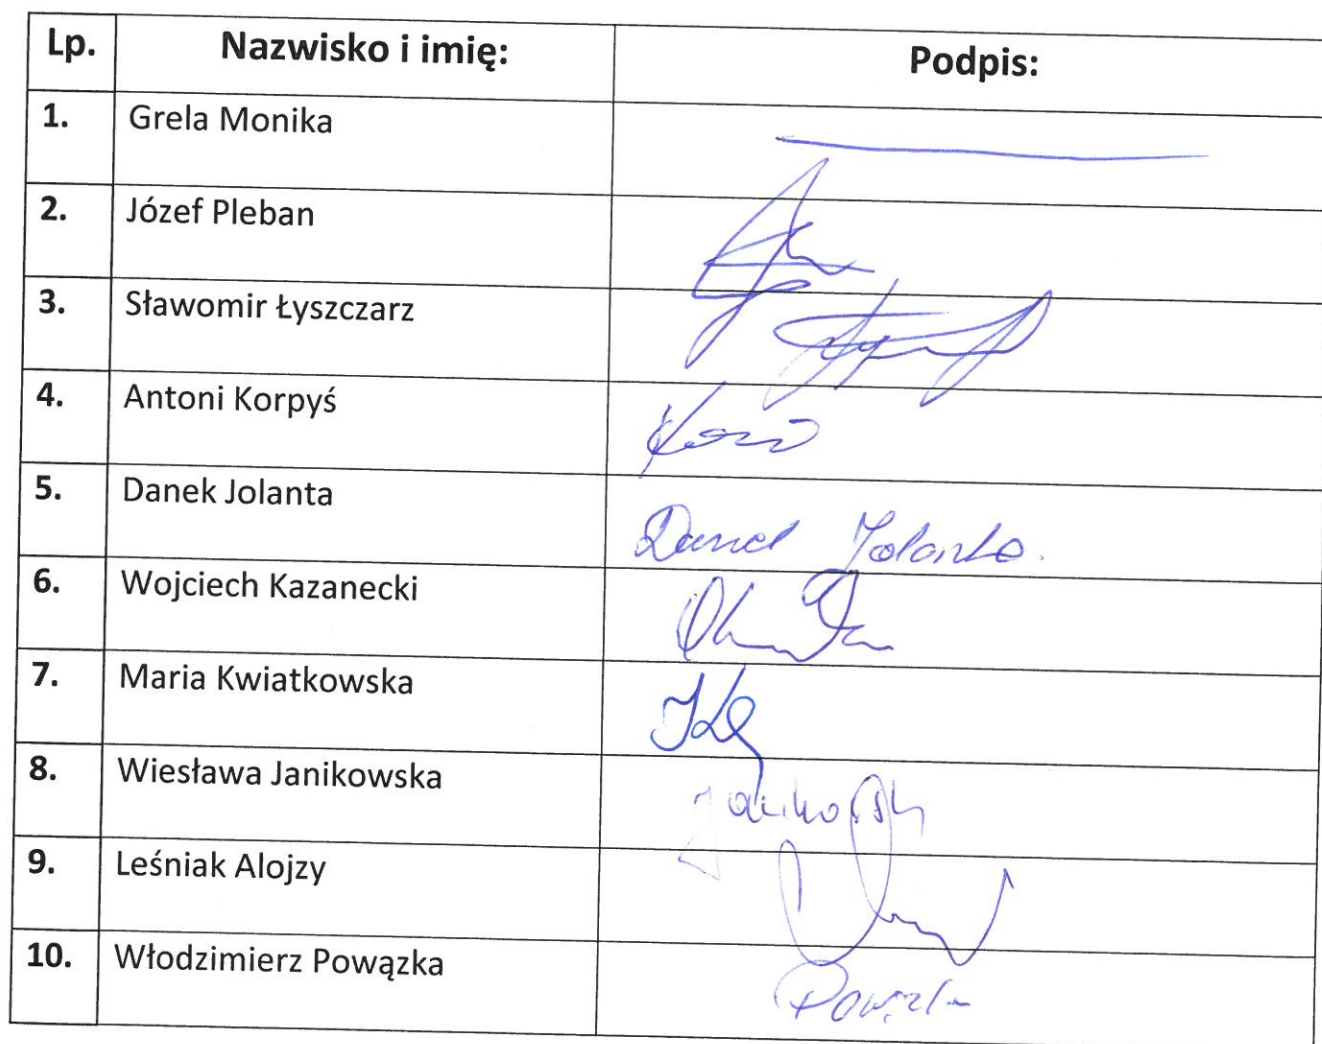 Lp. Nazwisko i imię: Podpis:
1. Grela Monika
2. Józef Pleban
3. Sławomir Łyszczarz
4. Antoni Korpyś
5. Danek Jolanta Danek Jolanta.
6. Wojciech Kazanecki
7. Maria Kwiatkowska
8. Wiesława Janikowska
9. Leśniak Alojzy
10. Włodzimierz Powązka